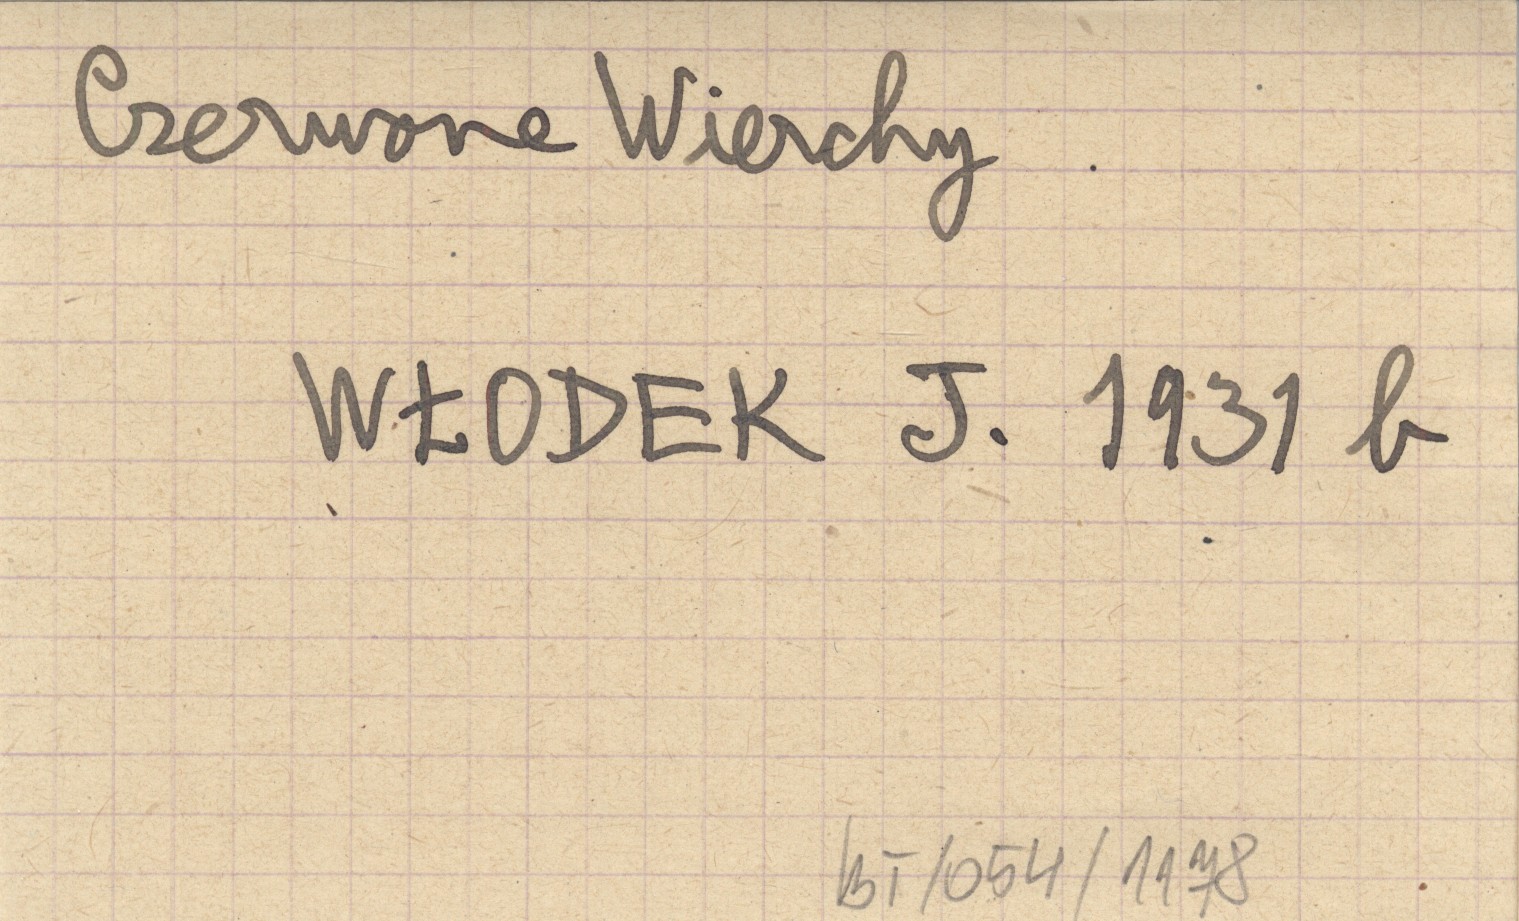 Czerwone Wierchy
WŁODEK J. 1931 b
BT/054/1178